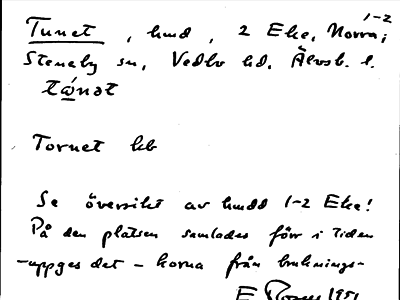 1-2
Tunet, hmd, 2 Eke, Norra;
Steneby sn, Vedbo hd. Älvsb. l.
Tornet lcb
Se översikt av hmdd 1-2 Eke!
På den platsen samlades förr i tiden
-uppges det - korna från bruknings-
E 1951